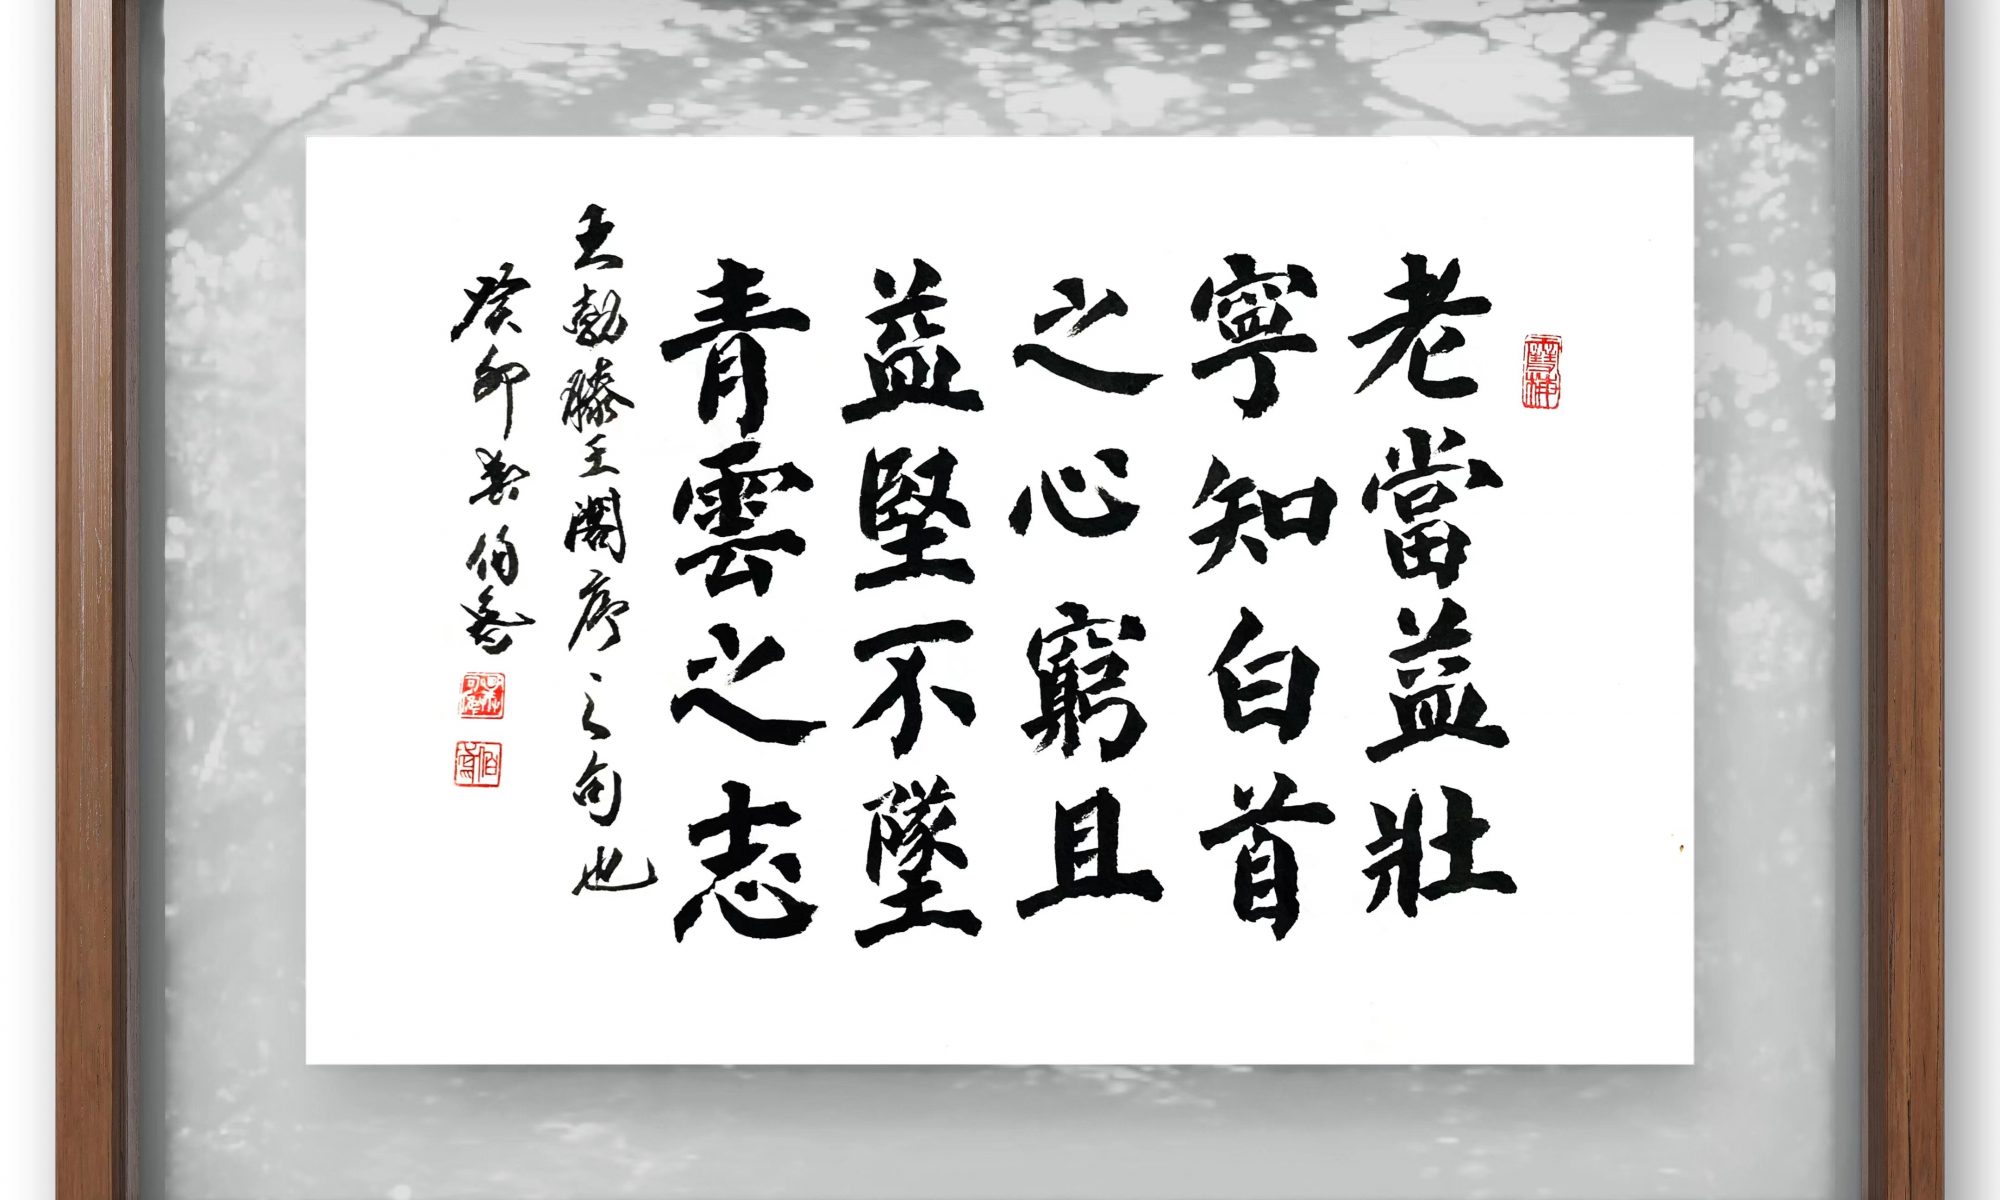 老當益壯
寧知白首
之心窮且
益堅不墜
青雲之志
王勃滕王閣序之句也
癸卯伯